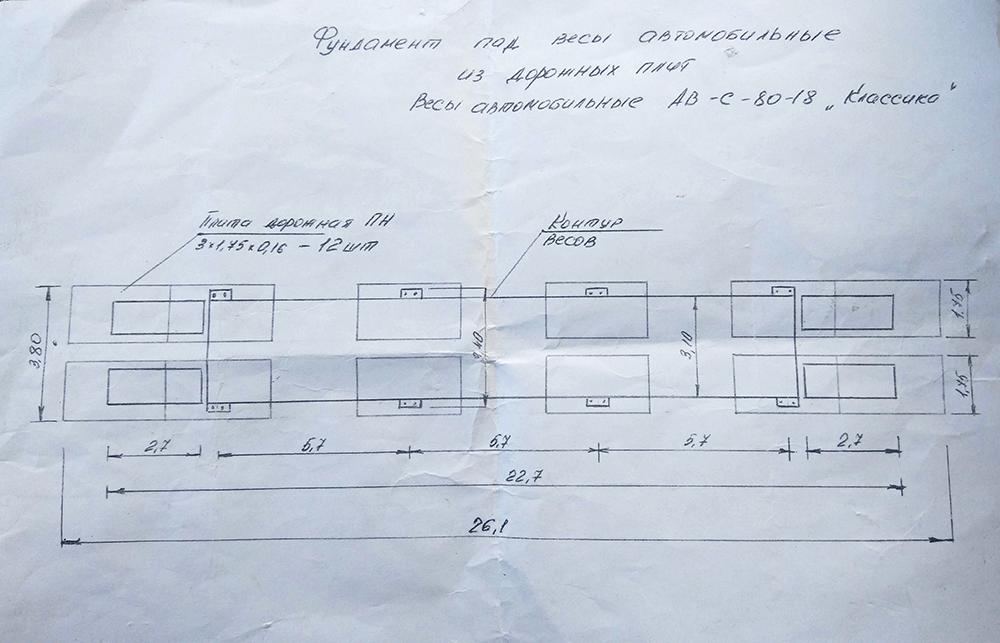 Фундамент под весы автомобильные
из дорожных плит
Весы автомобильные АВ-С-80-18 „Классика"
Плита дорожная ПН
3×1,75×0,16 - 12шт
Контур
весов
3,80
3,40
3,10
1,75
1,75
2,7
5,7
5,7
5,7
2,7
22,7
26,1